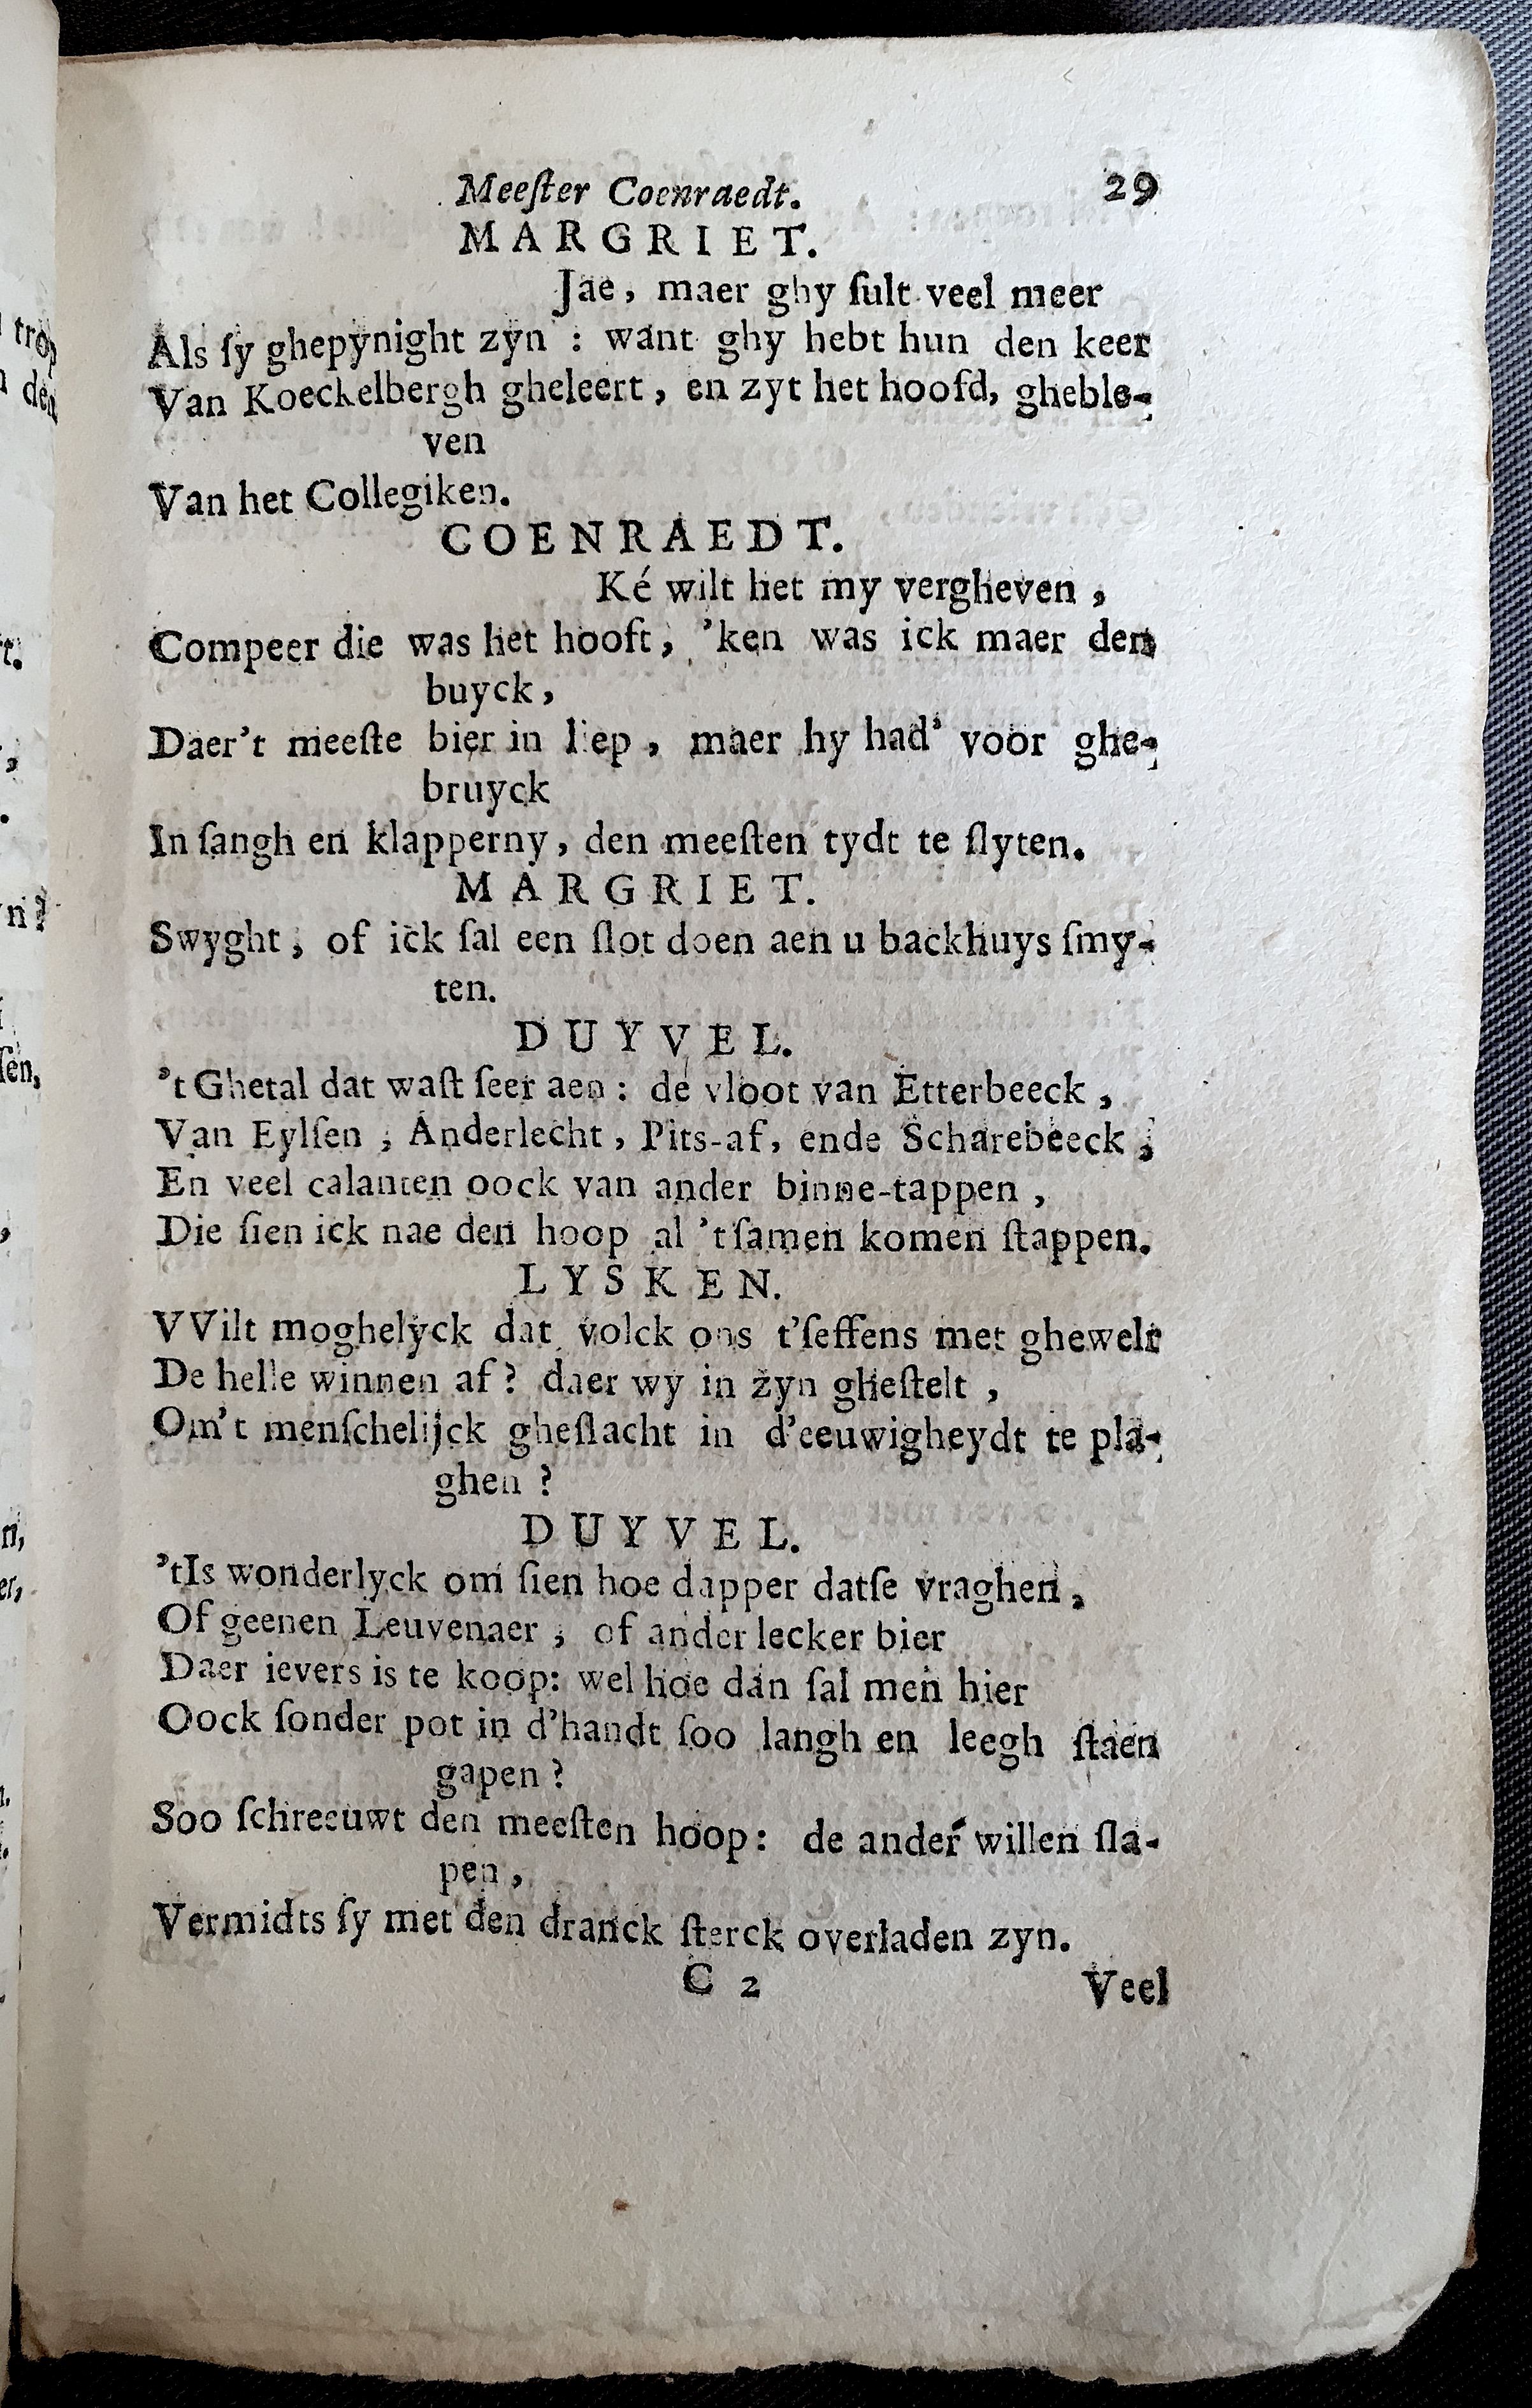 Meeſter Coenraedt. 29
MARGRIET.
Jae, maer ghy ſult veel meer
Als ſy ghepynight zyn : want ghy hebt hun den keer
Van Koeckelbergh gheleert, en zyt het hoofd, gheble-
ven
Van het Collegiken.
COENRAEDT.
Ké wilt het my vergheven,
Compeer die was het hooft, 'ken was ick maer den
buyck,
Daer't meeſte bier in liep, maer hy had' voor ghe-
bruyck
In ſangh en klapperny, den meeſten tydt te ſlyten.
MARGRIET.
Swyght, of ick ſal een ſlot doen aen u backhuys ſmy-
ten.
DUYVEL.
't Ghetal dat waſt ſeer aen : de vloot van Etterbeeck,
Van Eylſen, Anderlecht, Pits-af, ende Scharebeeck,
En veel calanten oock van ander binne-tappen,
Die ſien ick nae den hoop al 'tſamen komen ſtappen.
LYSKEN.
VVilt moghelyck dat volck ons t'ſeffens met ghewelt
De helle winnen af? daer wy in zyn gheſtelt,
Om't menſchelijck gheſlacht in d'eeuwigheydt te pla-
ghen?
DUYVEL.
'tIs wonderlyck om ſien hoe dapper datſe vraghen,
Of geenen Leuvenaer, of ander lecker bier
Daer ievers is te koop: wel hoe dan ſal men hier
Oock ſonder pot in d'handt ſoo langh en leegh ſtaen
gapen?
Soo ſchreeuwt den meeſten hoop: de ander willen ſla-
pen,
Vermidts ſy met den dranck ſterck overladen zyn.
C 2 Veel